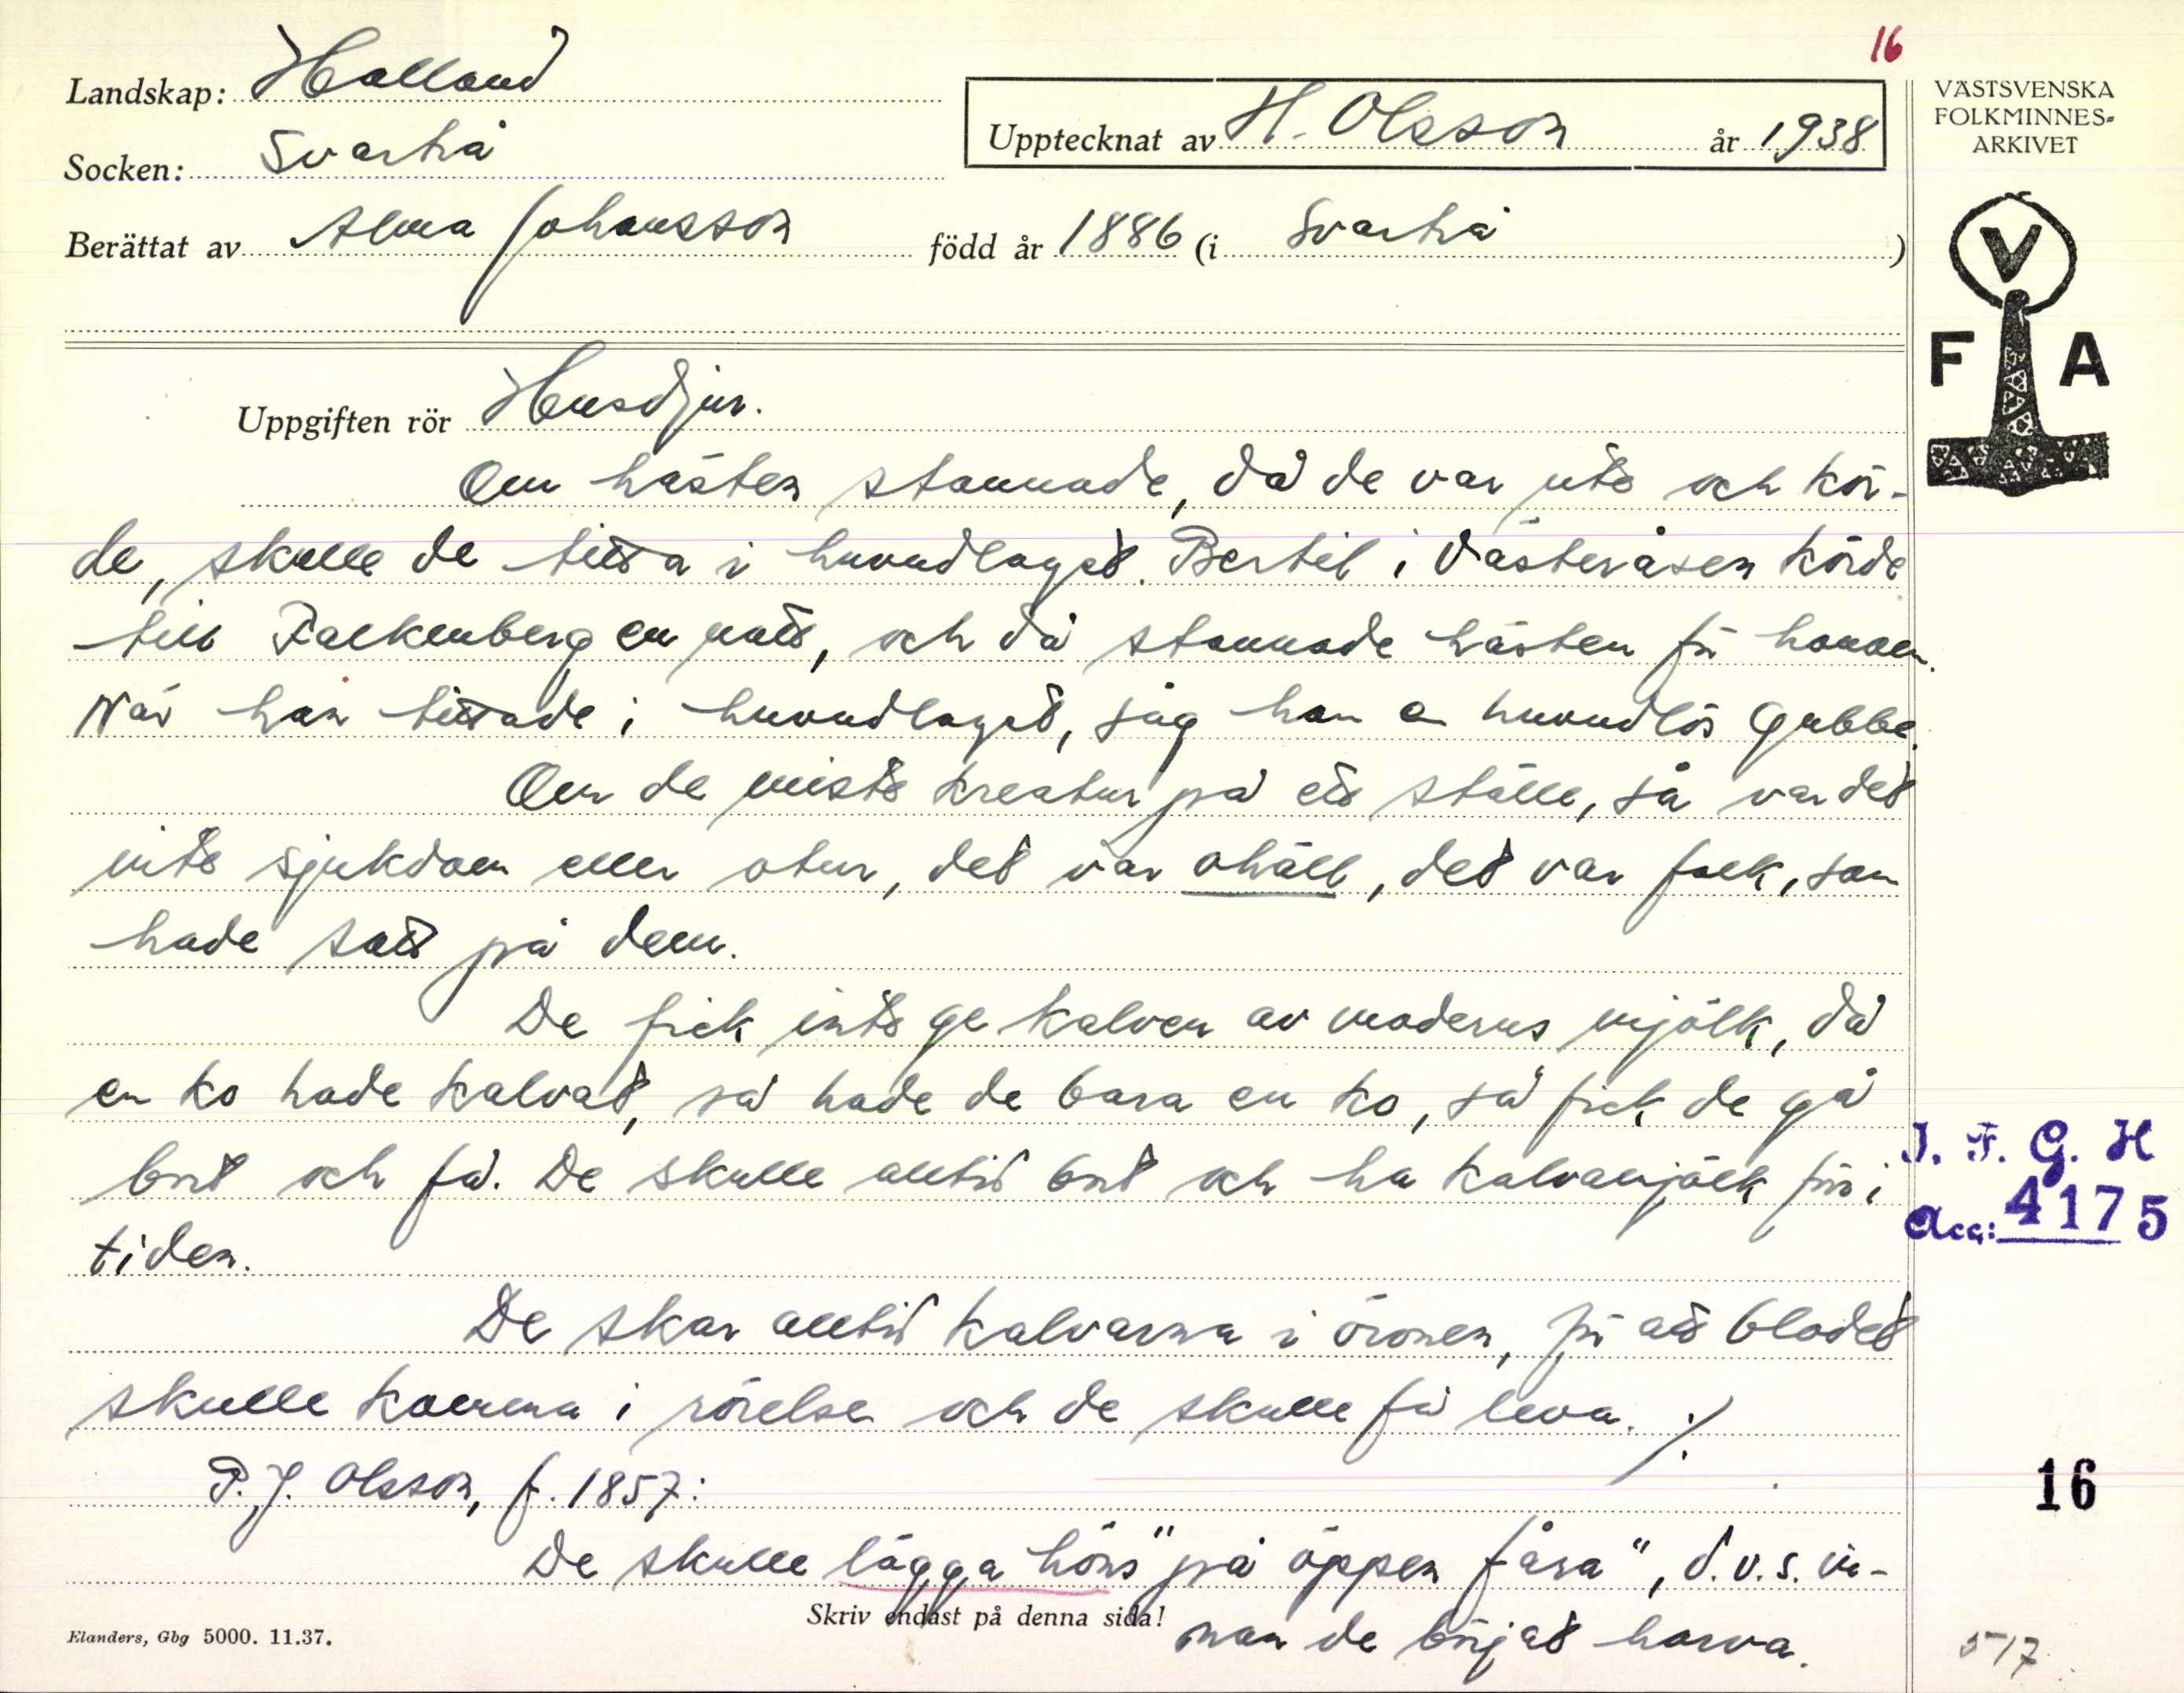 16
Landskap: Halland
Upptecknat av H. Olsson år 1938
VÄSTSVENSKA
FOLKMINNES-
ARKIVET
Socken: Svartrå
Berättat av Alma Johansson född år 1886 (i Svartrå )
V
F A
Uppgiften rör Husdjur.
Om hästen stannade, då de var ute och kör-
de, skulle de titta i huvudlaget. Bertil i Västeråsen körde
till Falkenberg en natt, och då stannade hästen för honom.
När han tittade i huvudlaget, såg han en huvudlös gubbe.
Om de miste kreatur på ett ställe, så var det
inte sjukdom eller otur, det var ohäll, det var folk, som
hade satt på dem.
De fick inte ge kalven av moderns mjölk, då
en ko hade kalvat, så hade de bara en ko, så fick de gå
bort och få. De skulle alltid bort och ha kalvamjölk förr i
tiden.
I. F. G. H
Acc: 4175
De skar alltid kalvarna i öronen, för att blodet
skulle komma i rörelse och de skulle få leva. ./.
P. J. Olsson, f. 1857:
16
De skulle lägga höns "på öppen fåra", d.v.s. in-
nan de börjat harva.
Skriv endast på denna sida!
Elanders, Gbg 5000. 11.37.
517